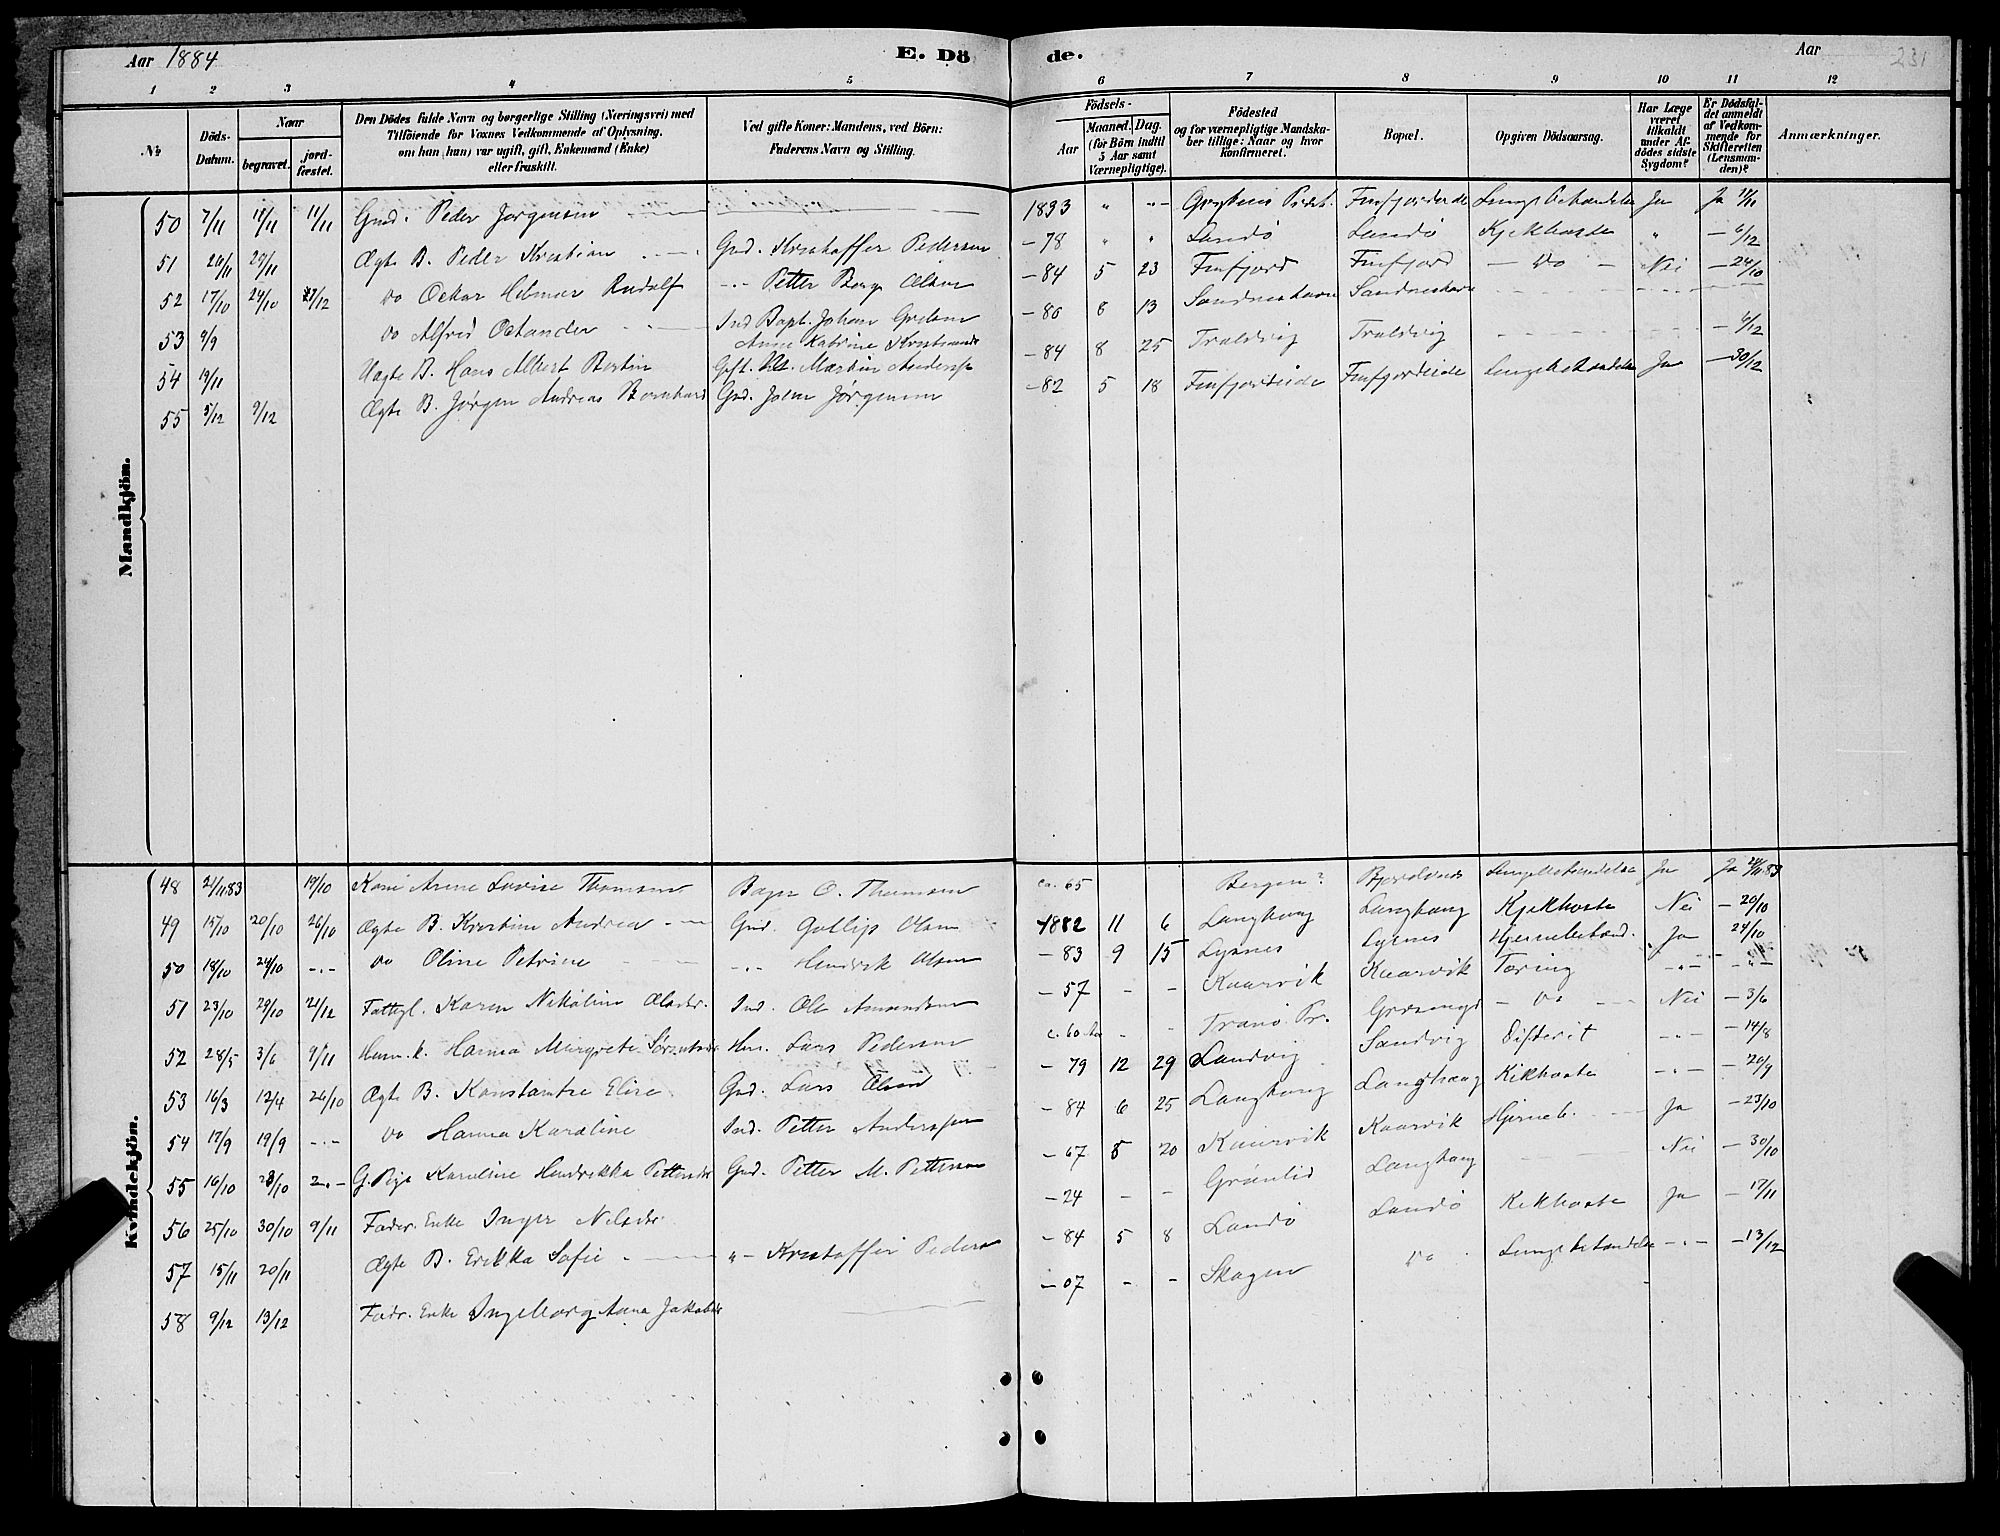 Aar 1884 E. Dö de. Aar 231
1 2 3 4 5 6 7 8 9 10 11 12
No Döds-Datum. Naar begravet. jordfæstet. Den Dödes fulde Navn og borgerlige Stilling (Næringsvei) med Tilföiende for Voxnes Vedkommende af Oplysning, om han (hun) var ugift, gift, Enkemand (Enke) eller fraskilt. Ved gifte Koner: Mandens, ved Börn: Faderens Navn og Stilling. Födsels- Aar Maaned. Dag. (for Börn indtil 5 Aar samt Værnepligtige). Födested og for værnepligtige Mandskaber tillige: Naar og hvor konfirmeret. Bopæl. Opgiven Dödsaarsag. Har Læge været tilkaldt under Afdödes sidste Sygdom? Er Dödsfaldet anmeldt af Vedkommende for Skifteretten (Lensmanden)? Anmærkninger.
Mandkjön.
50 7/11 18/11 11/11 Gmd. Peder Jørgensen 1833 " " Finfjordeide Lungebetændelse Ja Ja 11/11
51 20/11 25/11 Ægte B. Peder Kristian Gmd. Kristoffer Pedersen - 78 " " Landø Landø Kjekhoste " - 6/12
52 17/10 24/10 27/12 do Oskar Helmar Rudolf - Petter Berg Olsen - 84 5 23 Finfjord Finfjord - do - Nei - 24/10
53 9/9 do Alfred Octander Ind Bapt. Johan - 80 8 13 Sandneshavn Sandneshavn
54 19/11 Uægte B. Hans Albert Bertin Anne Katrine Gift. Martin Anderss - 84 8 25 Troldvig Troldvig - 4/12
55 5/12 9/12 Ægte B. Jørgen Andreas Bernhard Gmd. John Jørgensen - 82 5 18 Finfjordeide Finfjordeide Lungebetændelse Ja - 30/12
Kvindekjön.
48 2/11 83 19/10 Kani Arene Lovise Thomsen Bager O. Thomsen ca. 65 Bergen? Lungebetændelse Ja Ja 83
49 15/10 20/10 26/10 Ægte B. Kristine Andrea Gmd. Gollip Olsen 1882 11 6 Langhaug Langhaug Kjekhoste Nei - 20/10
50 18/10 24/10 -"- do Oline Petrine -"- Hendrik Olsen - 83 9 15 Lysnes Lysnes Hjernebetænd. Ja 24/10
51 23/10 29/10 21/12 Fattigl. Karen Nikoline Olsdtr. Ind. Ole Amundsen - 57 - - Kaarvik Kaarvik Tæring -"- -"-
52 28/5 3/6 9/11 Husm.k. Hanna Margrete Hus. Lars Pedersen c. 60 Aar - - Tranø Pr. - do - Nei - 3/6
53 16/3 12/4 26/10 Ægte B. Konstantse Elise Gmd. Lars Olsen - 79 12 29 Sandvig Sandvig Difterit -"- - 14/8
54 17/9 19/9 -"- do Hanna Karoline Ind. Petter Anderssen - 84 6 25 Langhaug Langhaug Kikhoste -"- - 20/9
55 16/10 28/10 -"- G. Pige Karoline Hendrikka Pettersdtr Gmd. Petter M. Pettersen - 67 8 20 Kaarvik Kaarvik Hjerneb. Ja - 23/10
56 25/10 30/10 9/11 Fader. Enke Inger Nilsdtr - 24 - - Grønlid Langhaug Nei - 30/10
57 15/11 20/11 Ægte B. Erikka Sofie "- Kristoffer Peders - 84 5 8 Landø Landø Kikhoste Ja - 17/11
58 9/12 13/12 Fadr. Enke Ingeborg Anna Jakobsdtr - 07 - - Skogen do Lungebetændelse -"- - 13/12